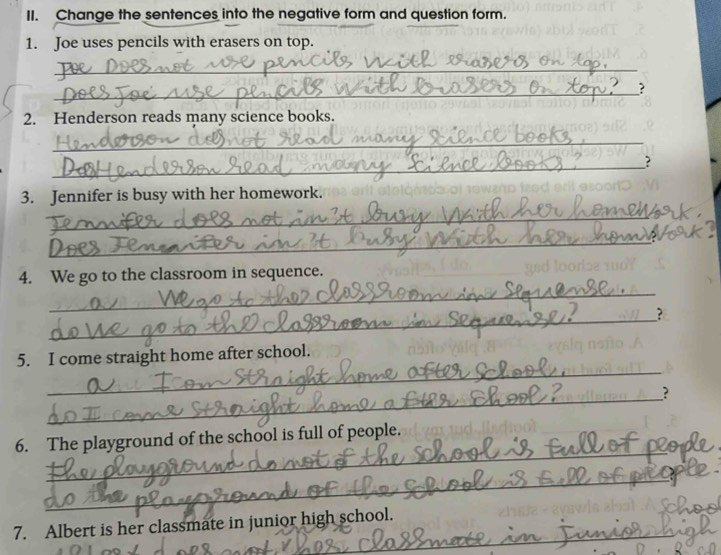 II. Change the sentences into the negative form and question form.
1. Joe uses pencils with erasers on top.
Joe Does not use pencils with erasers on top.
Does Joe use pencils with erasers on top? ?
2. Henderson reads many science books.
Henderson does not read many science books.
Does Henderson read many science books? ?
3. Jennifer is busy with her homework.
Jennifer does not isn't busy with her homework.
Does Jennifer isn't busy with her homwork?
4. We go to the classroom in sequence.
We go to the classroom in sequense.
do We go to the classroom in sequense? ?
5. I come straight home after school.
I com straight home after school.
do I come straight home after shool? ?
6. The playground of the school is full of people.
the playground do not of the school is full of people.
do the playground of the school is full of people.
7. Albert is her classmate in junior high school.
school
does not her classmate in junior high